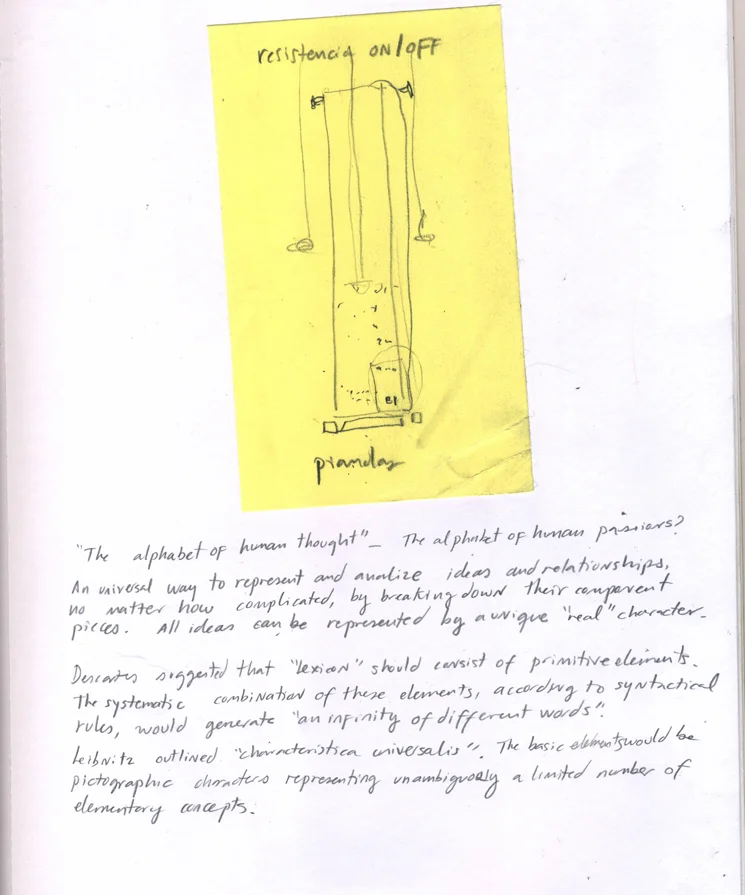 resistencia ON/OFF
"The alphabet of human thought"_ The alphabet of human passions?
An universal way to represent and analize ideas and relationships,
no matter how complicated, by breaking down their component
pieces. All ideas can be represented by a unique "real" character_
Descartes suggested that "lexicon" should consist of primitive elements.
The systematic combination of these elements, according to syntactical
rules, would generate "an infinity of different words".
Leibnitz outlined "characteristica universalis". The basic elements would be
pictographic characters representing unambiguosly a limited number of
elementary concepts.